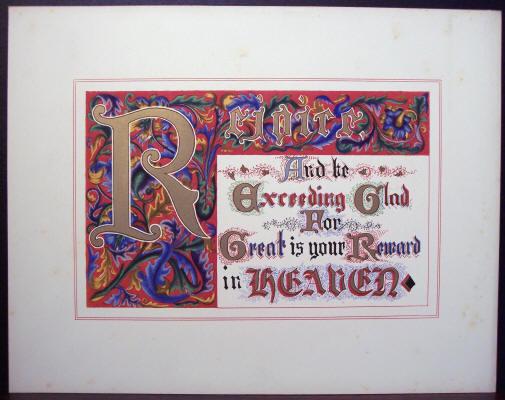 Rejoice
And be
Exceeding Glad
For
Great is your Reward
in HEAVEN